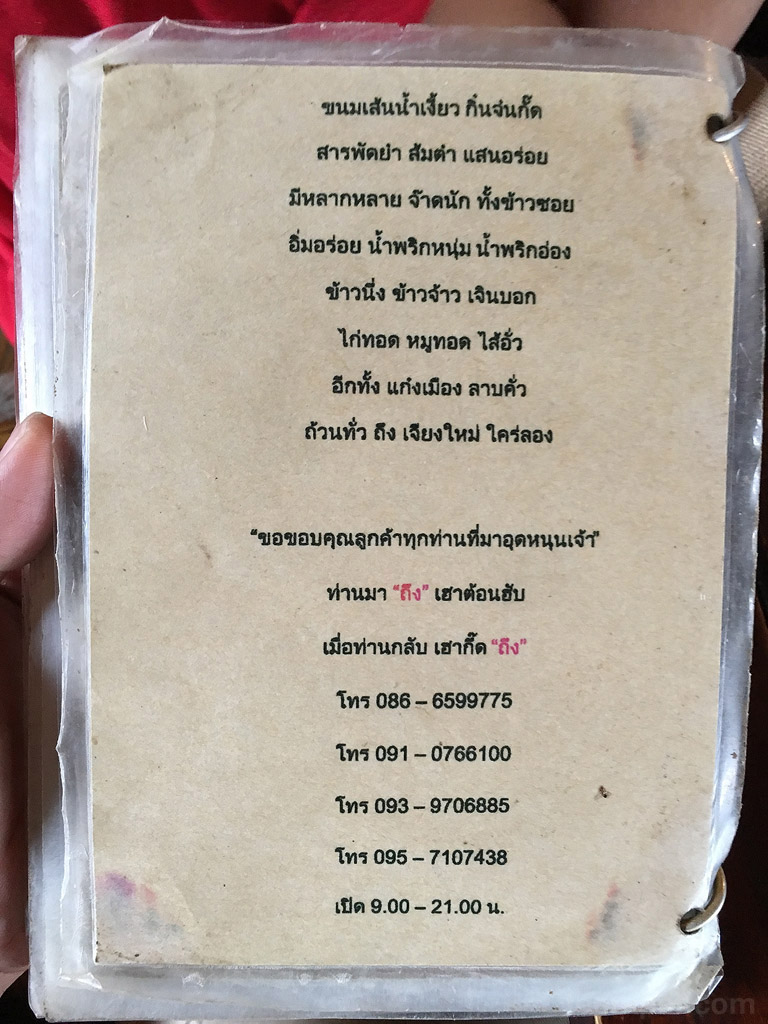 ขนมเส้นน้ำเงี้ยว กิ๋นจ่นกั๊ด
สารพัดยำ ส้มตำ แสนอร่อย
มีหลากหลาย จ๊าดนัก ทั้งข้าวซอย
อิ่มอร่อย น้ำพริกหนุ่ม น้ำพริกอ่อง
ข้าวนึ่ง ข้าวจ้าว เจินบอก
ไก่ทอด หมูทอด ไส้อั่ว
อีกทั้ง แก๋งเมือง ลาบคั่ว
ถ้วนทั่ว ถึง เจียงใหม่ ใคร่ลอง
“ขอขอบคุณลูกค้าทุกท่านที่มาอุดหนุนเจ้า”
ท่านมา “ถึง” เฮาต้อนฮับ
เมื่อท่านกลับ เฮากึ๊ด “ถึง”
โทร 086 – 6599775
โทร 091 – 0766100
โทร 093 – 9706885
โทร 095 – 7107438
เปิด 9.00 – 21.00 น.